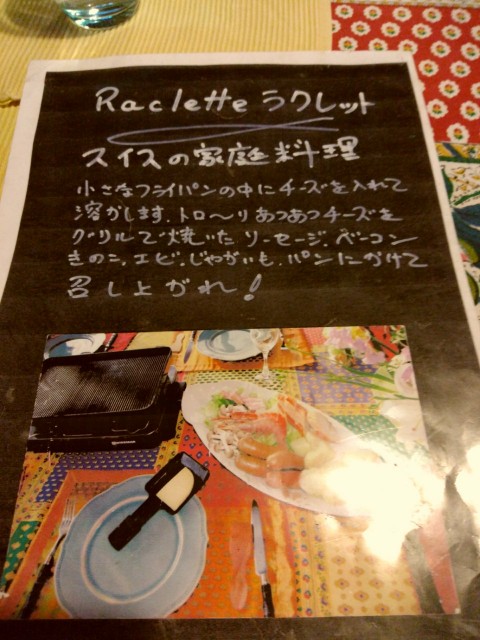 Raclette ラクレット
スイスの家庭料理
小さなフライパンの中にチーズを入れて
溶かします。トロ〜りあつあつチーズを
グリルで焼いたソーセージ、ベーコン
きのこ、エビ、じゃがいも、パンにかけて
召し上がれ!